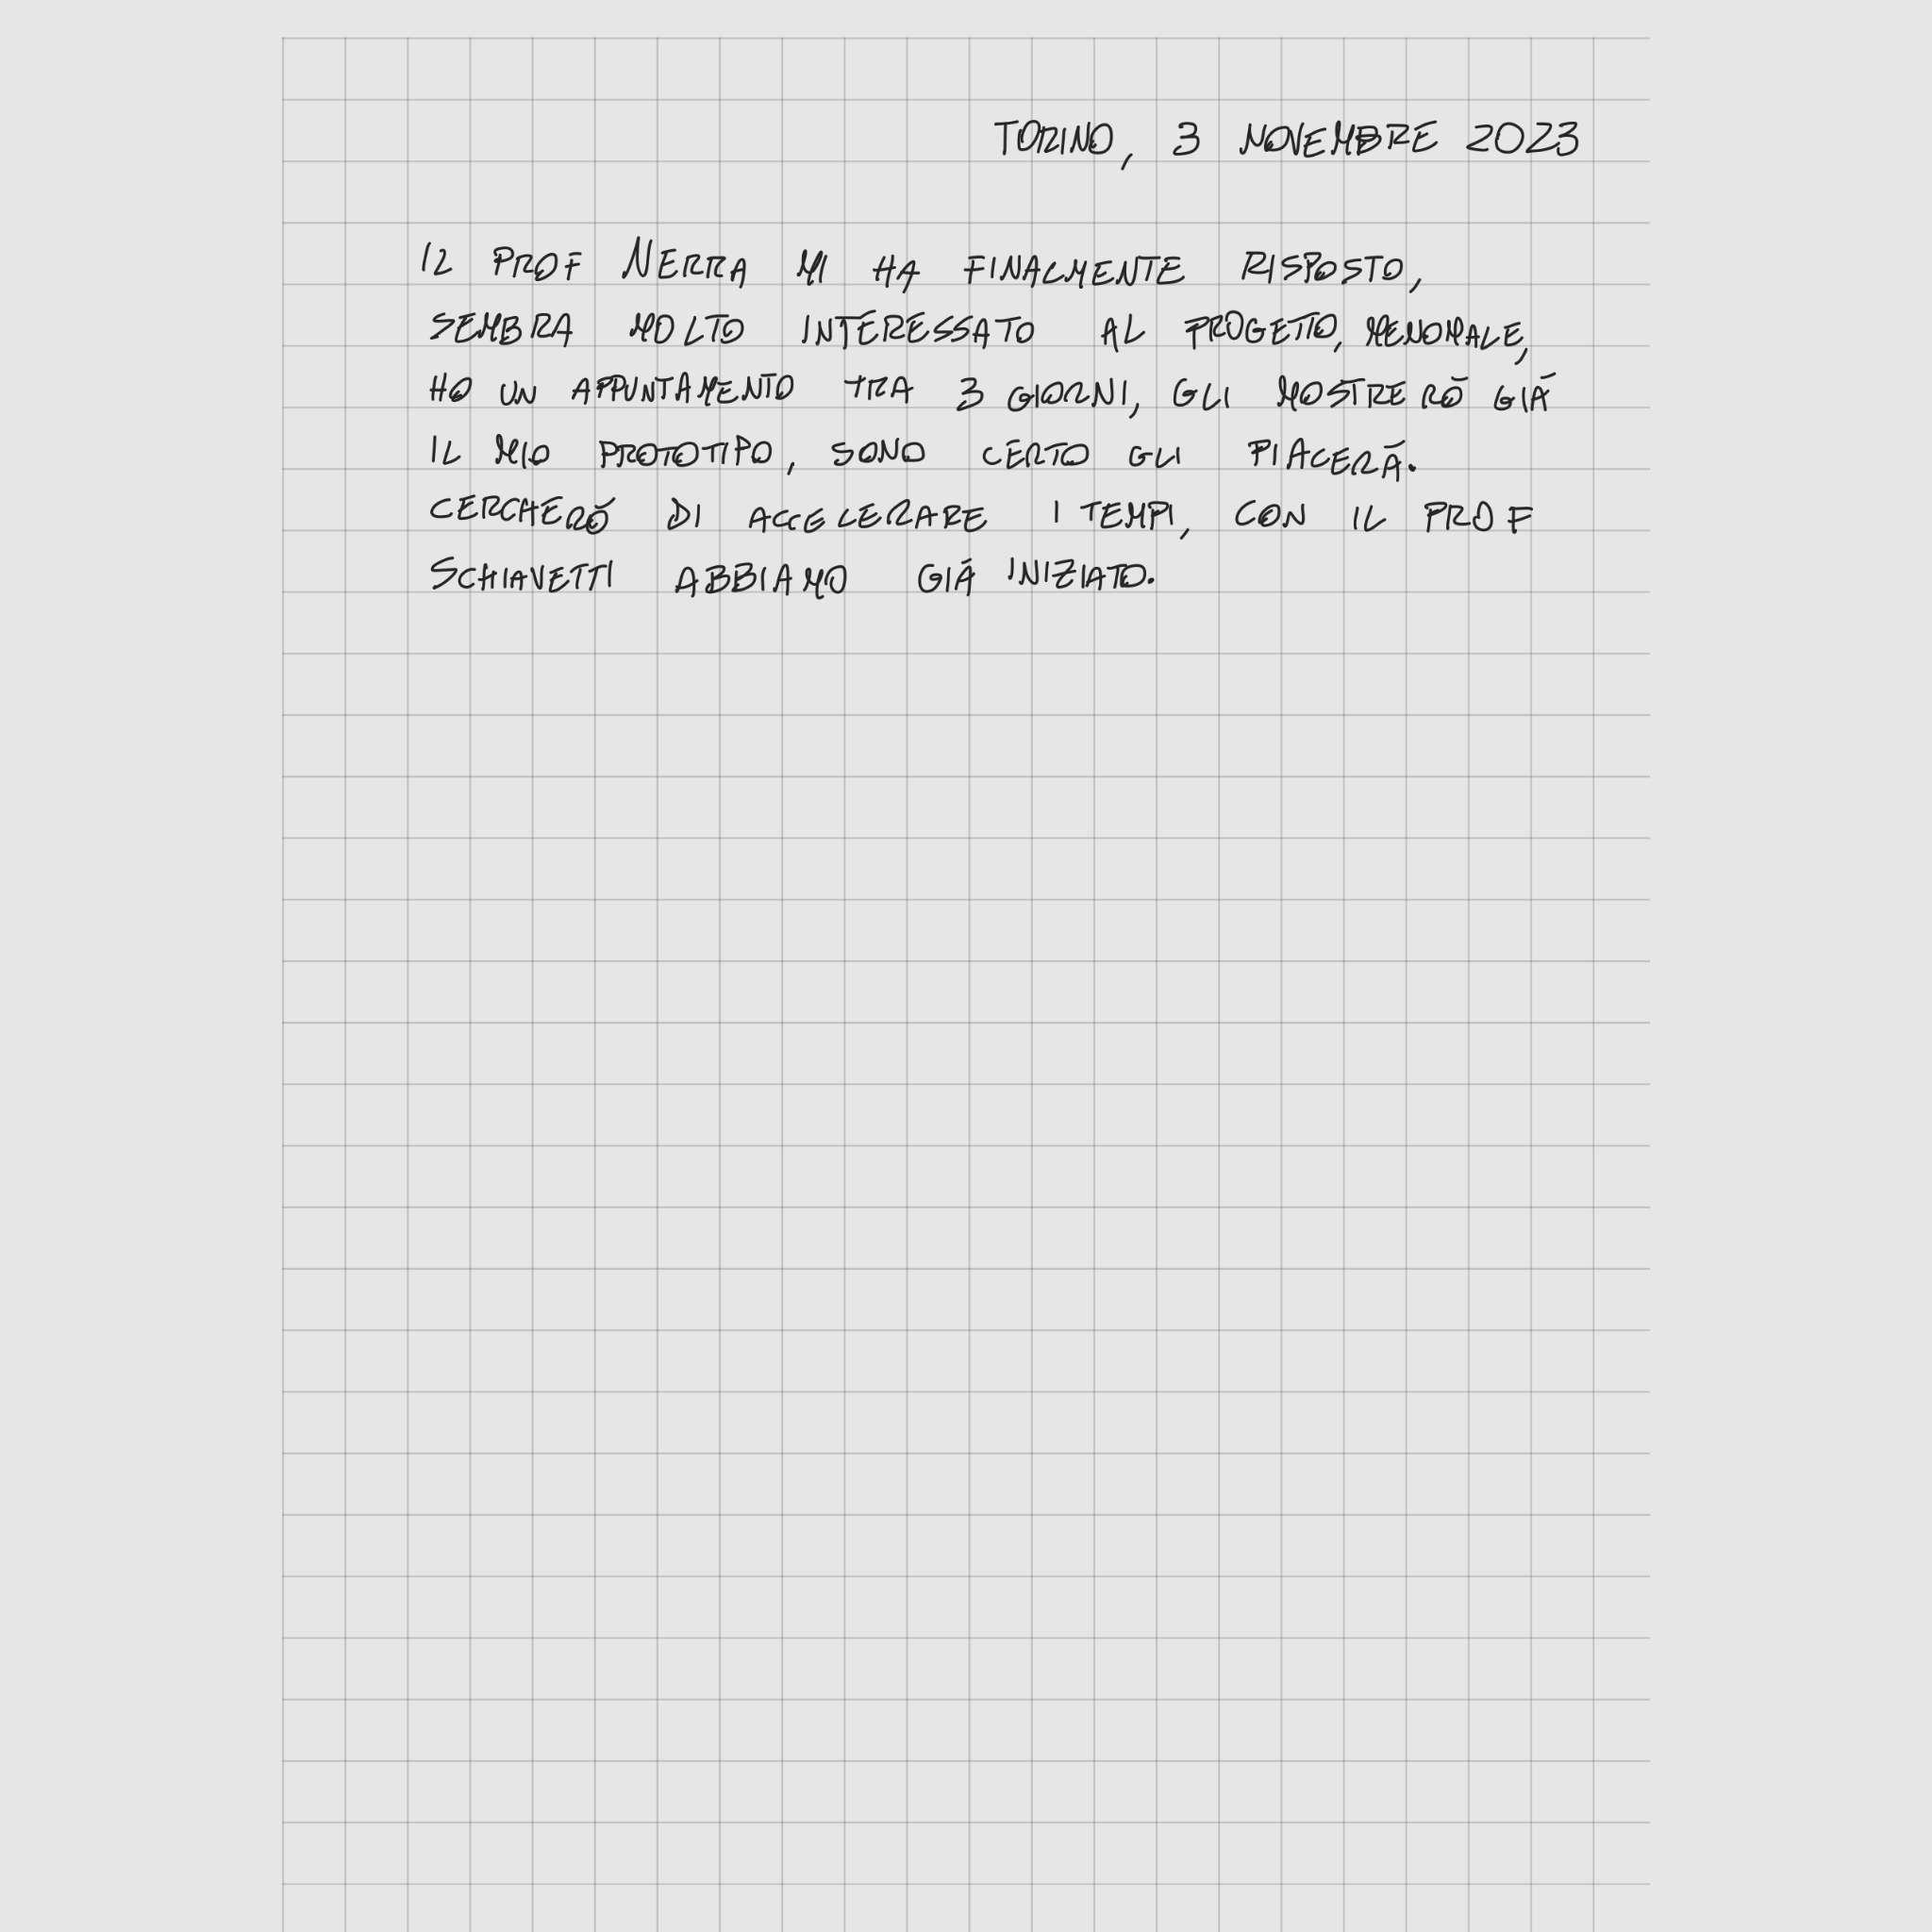 TORINO, 3 NOVEMBRE 2023
IL PROF NERRA MI HA FINALMENTE RISPOSTO,
SEMBRA MOLTO INTERESSATO AL PROGETTO, MENOMALE,
HO UN APPUNTAMENTO TRA 3 GIORNI, GLI MOSTRERÒ GIÀ
IL MIO PROTOTIPO, SONO CERTO GLI PIACERÀ.
CERCHERÒ DI ACCELERARE I TEMPI, CON IL PROF
SCHIAVETTI ABBIAMO GIÀ INIZIATO.